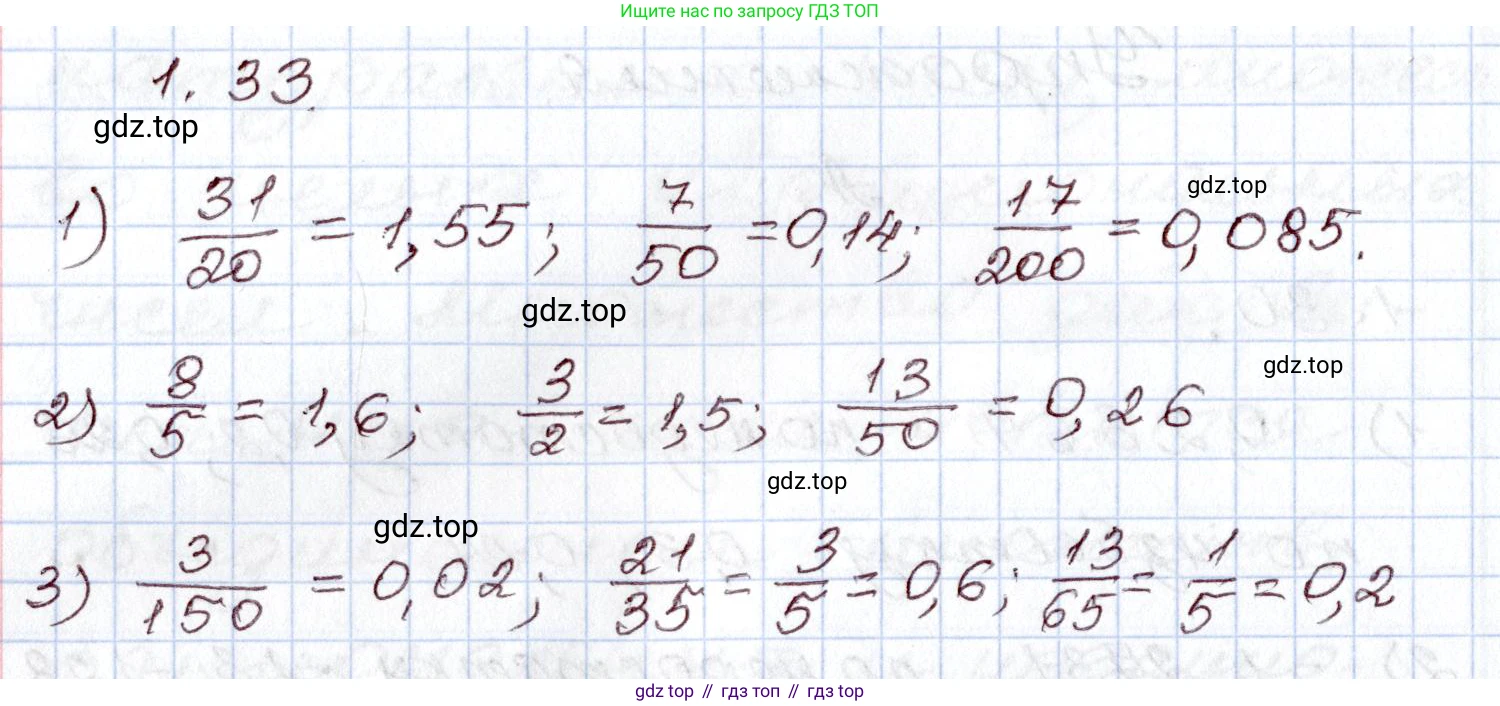 Ищите нас по запросу ГДЗ ТОП
1.33.
gdz.top
1) 31/20 = 1,55; 7/50 = 0,14; 17/200 = 0,085.
gdz.top
gdz.top
2) 8/5 = 1,6; 3/2 = 1,5; 13/50 = 0,26
gdz.top
gdz.top
3) 3/150 = 0,02; 21/35 = 3/5 = 0,6; 13/65 = 1/5 = 0,2
gdz.top
gdz top // гдз топ // гдз top